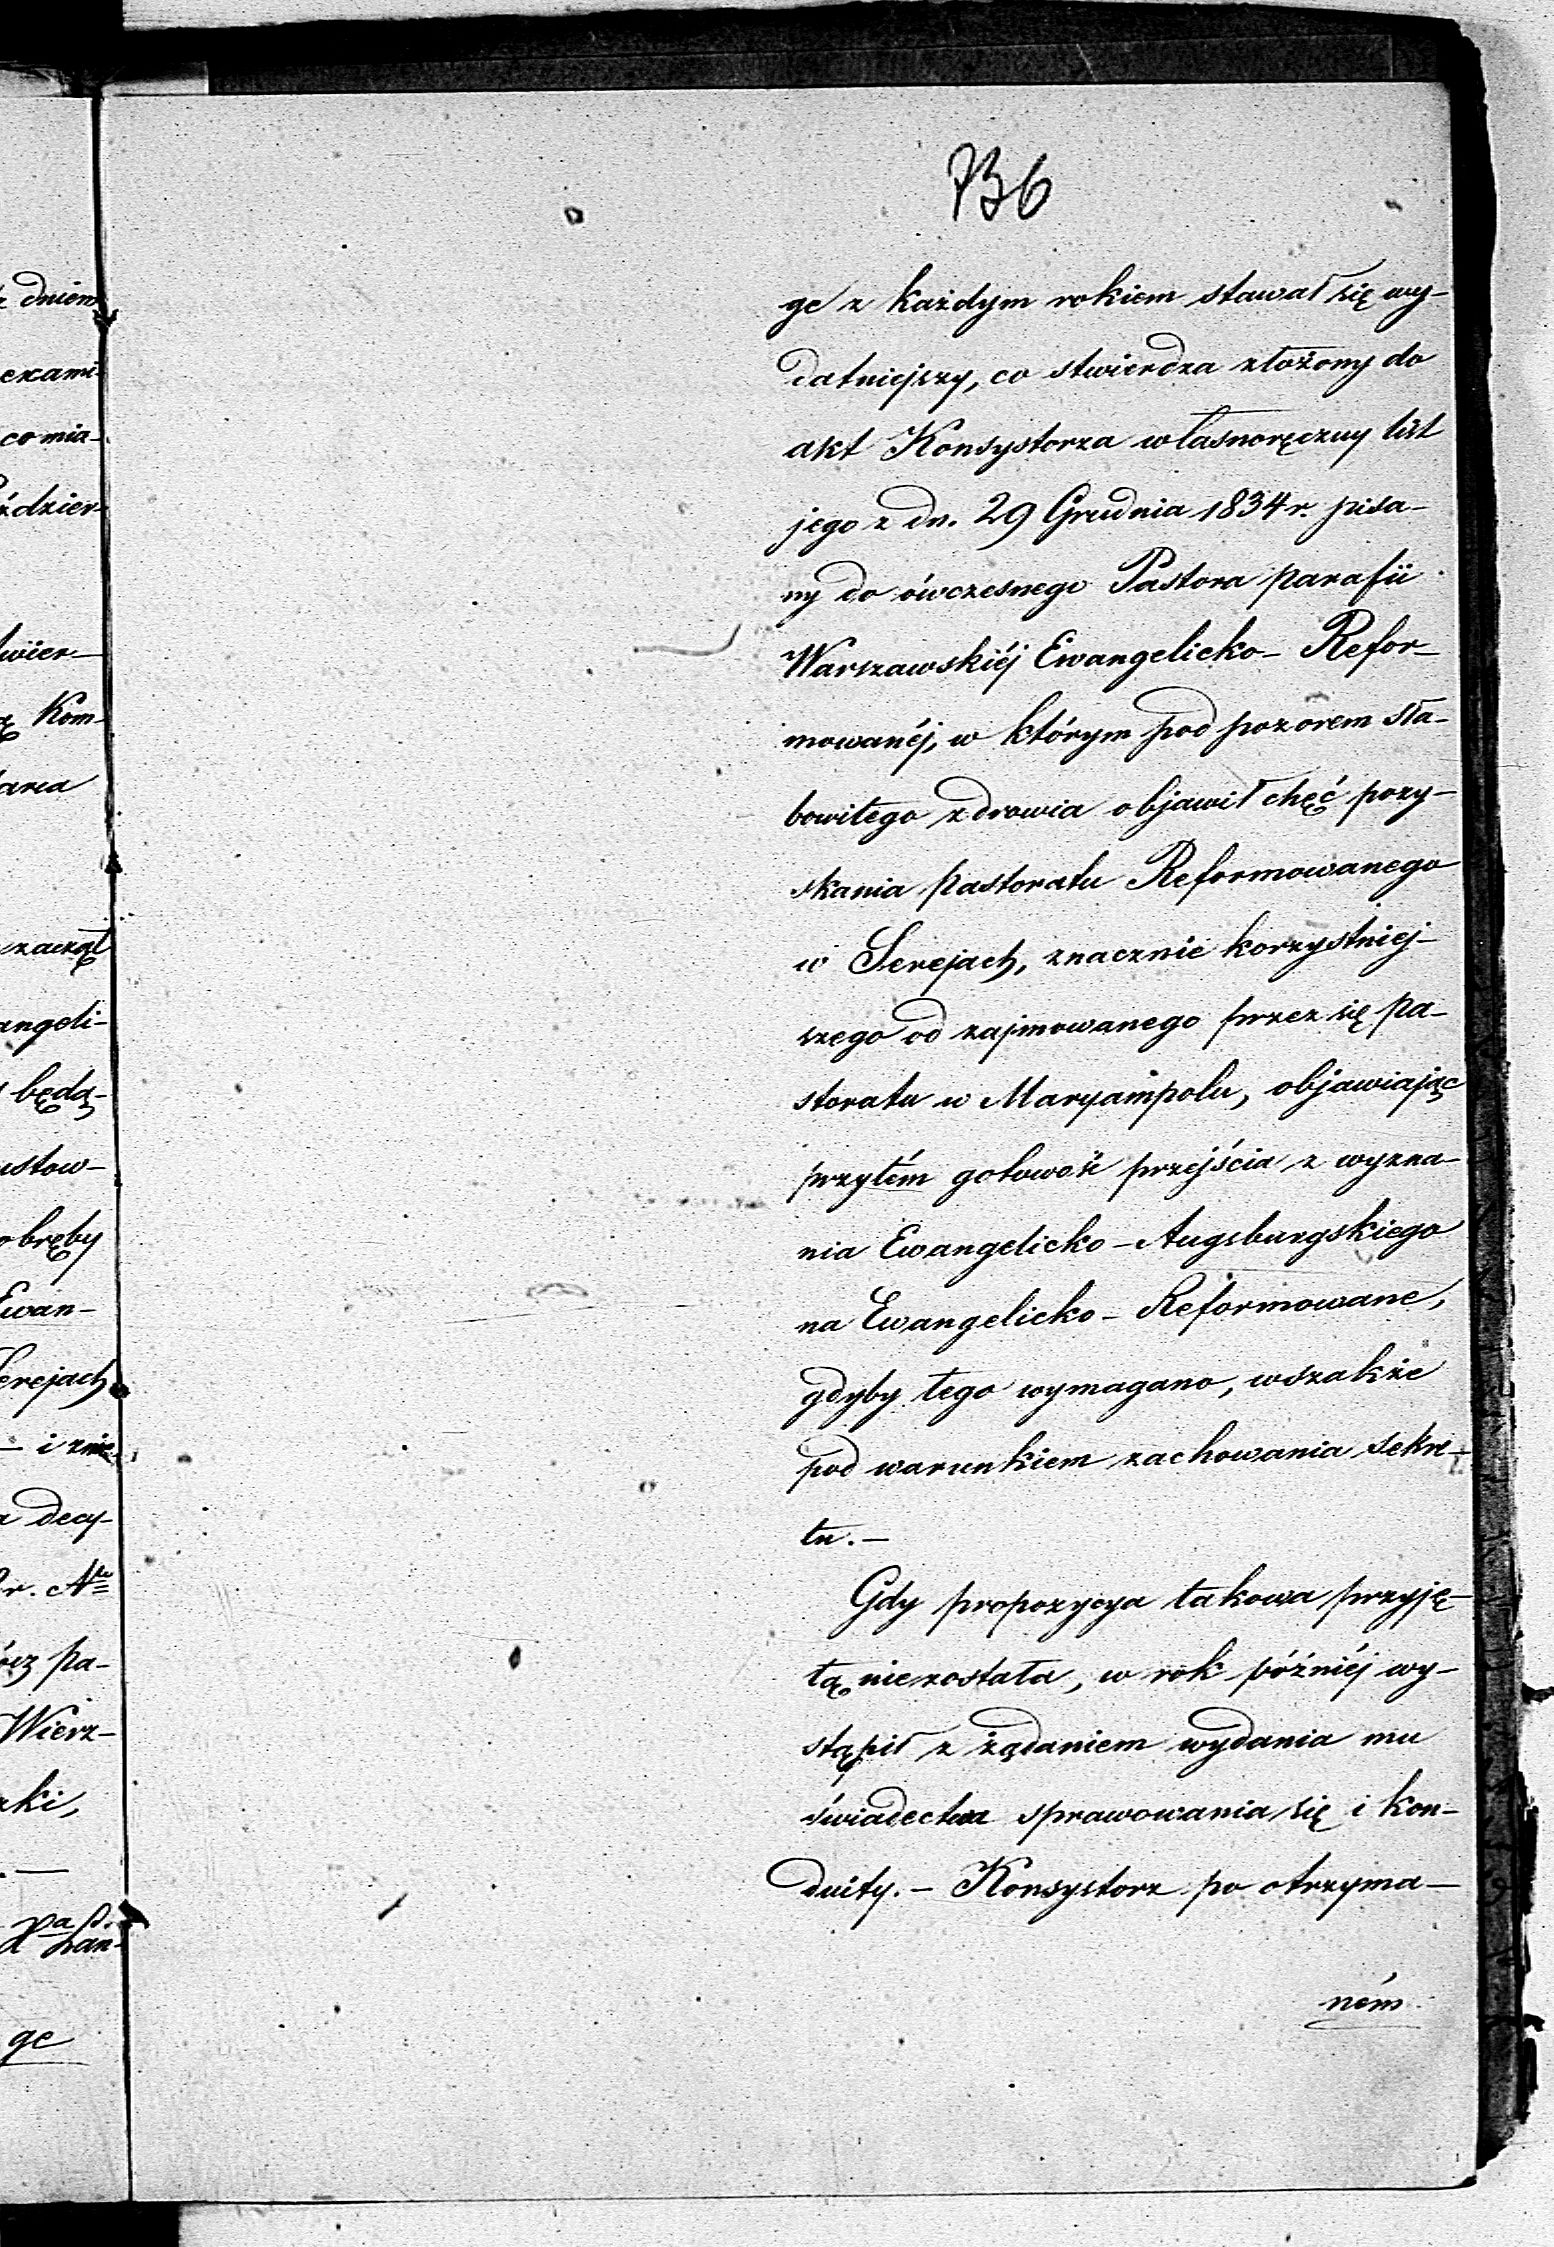 736
ge z każdym rokiem stawał się wy-
datniejszy, co stwierdza złożony do
akt Konsystorza własnoręczny list
jego z dn. 29 Grudnia 1834 r. pisa-
ny do ówczesnego Pastora parafii
Warszawskiéj Ewangelicko- Refor-
mowanéj, w którym pod pozorem sła-
bowitego zdrowia objawił chęć pozy-
skania pastoratu Reformowanego
w Serejach, znacznie korzystniej-
szego od zajmowanego przez się pa-
storatu w Maryampolu, objawiając
przytém gotowość przejścia z wyzna-
nia Ewangelicko-Augsburgskiego
na Ewangelicko- Reformowane,
gdyby tego wymagano, wszakże
pod warunkiem zachowania sekre-
tu.-
Gdy propozycya takowa przyję-
tą niezostała, w rok późniéj wy-
stąpił z żądaniem wydania mu
świadectwa sprawowania się i kon-
duity.- Konsystorz po otrzyma-
ném
dniem
exami-
co mia-
ździer-
wier-
Kom-
zaczął
angeli-
będą-
ustow-
obręby
Ewan-
Serejach
- i znie-
decy-
r. No
pa-
Wierz-
ki,
ge